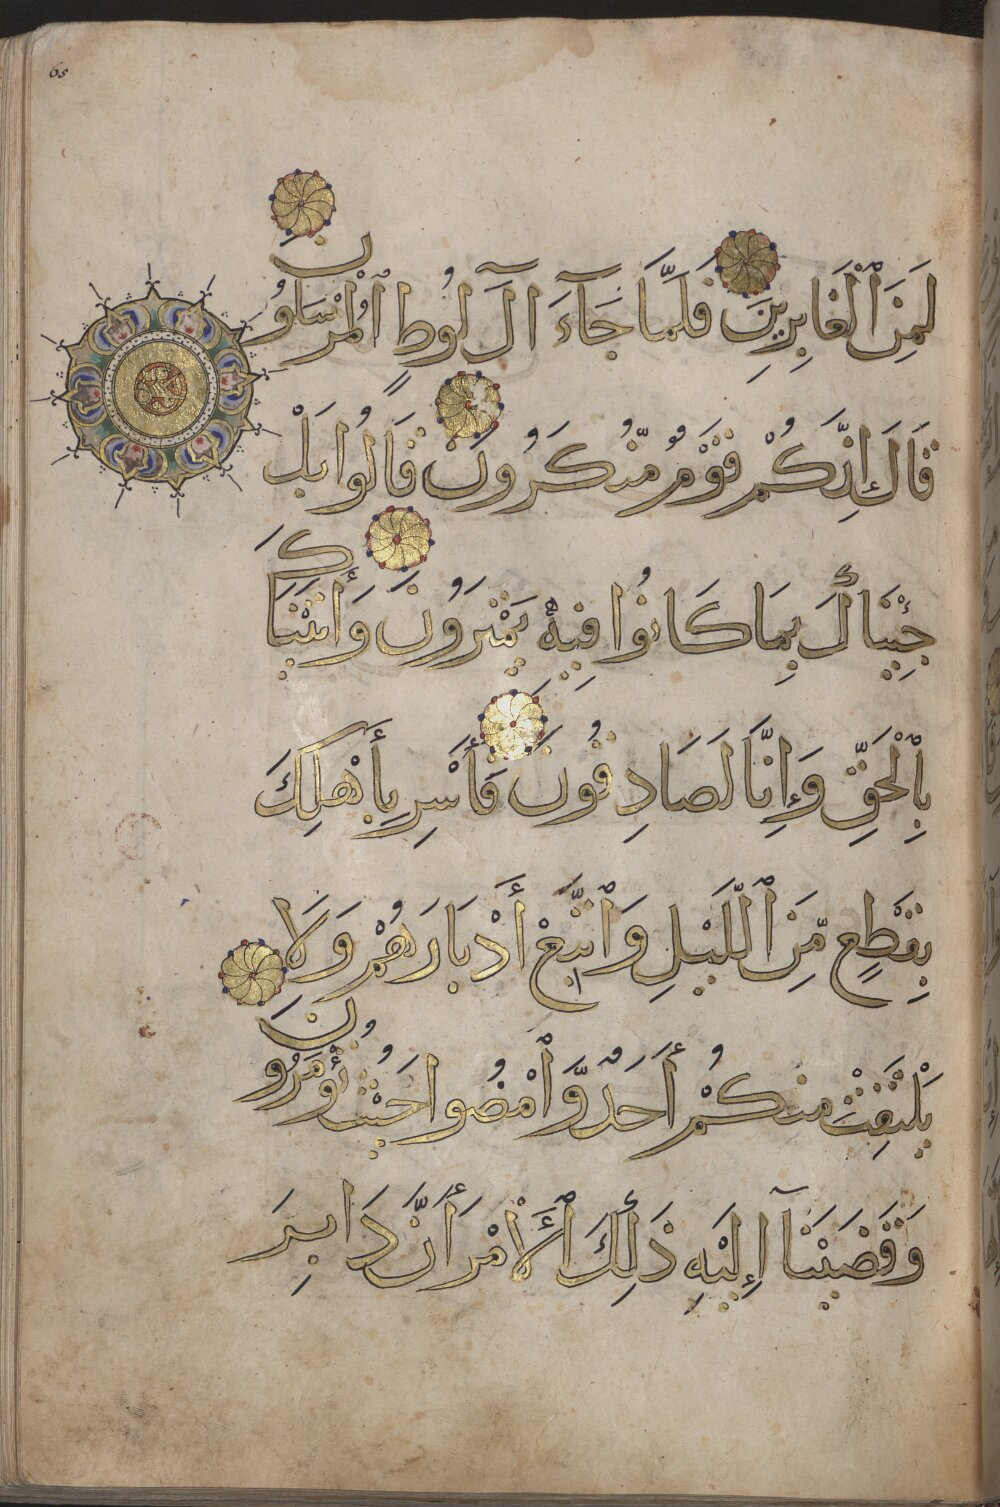 65
لَمِنَ ٱلْغَابِرِينَ فَلَمَّا جَآءَ آلَ لُوطٍ ٱلْمُرْسَلُونَ
قَالَ إِنَّكُمْ قَوْمٌ مُّنكَرُونَ قَالُوا بَلْ
جِئْنَاكَ بِمَا كَانُوا فِيهِ يَمْتَرُونَ وَأَتَيْنَاكَ
بِٱلْحَقِّ وَإِنَّا لَصَادِقُونَ فَأَسْرِ بِأَهْلِكَ
بِقِطْعٍ مِّنَ ٱللَّيْلِ وَٱتَّبِعْ أَدْبَارَهُمْ وَلَا
يَلْتَفِتْ مِنكُمْ أَحَدٌ وَّٱمْضُوا حَيْثُ تُؤْمَرُونَ
وَقَضَيْنَآ إِلَيْهِ ذَٰلِكَ ٱلْأَمْرَ أَنَّ دَابِرَ